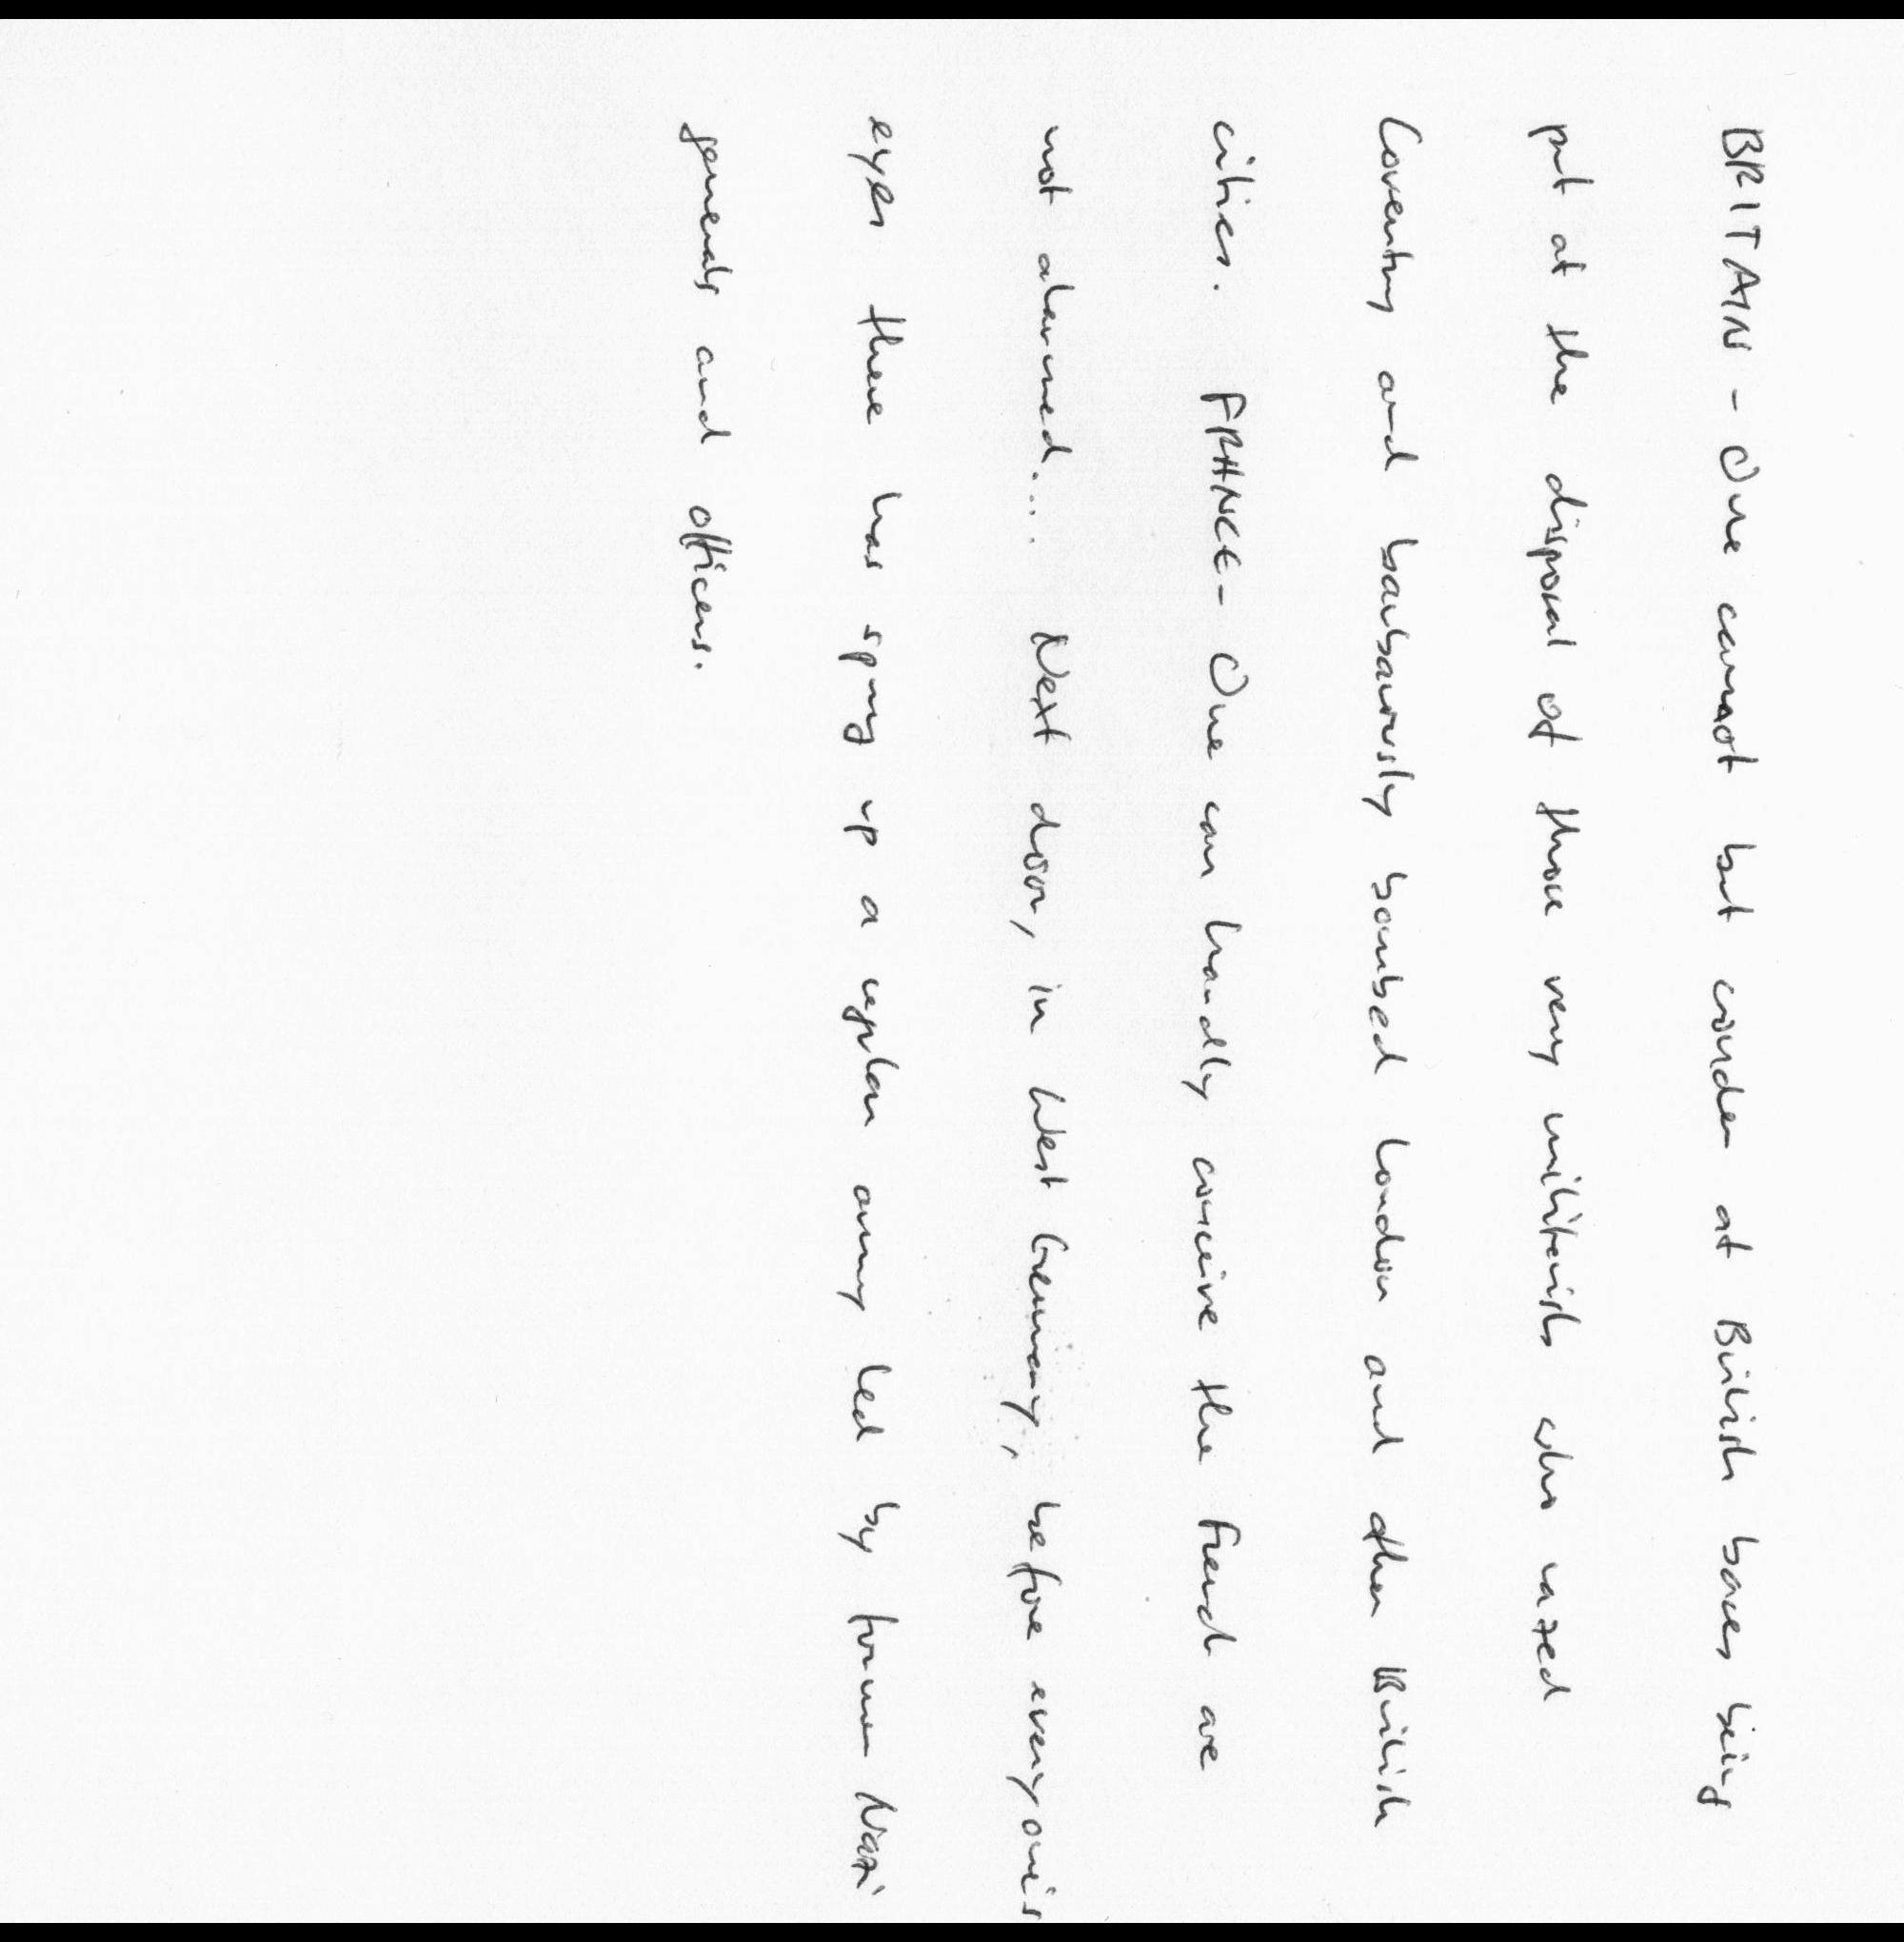 BRITAIN - One cannot but wonder at British bases being
put at the disposal of those very militarists who razed
Coventry and barbarously bombed London and other British
cities. FRANCE - One can hardly conceive the French are
not alarmed... Next door, in West Germany, before everyone's
eyes there has sprung up a regular army led by former Nazi
generals and officers.